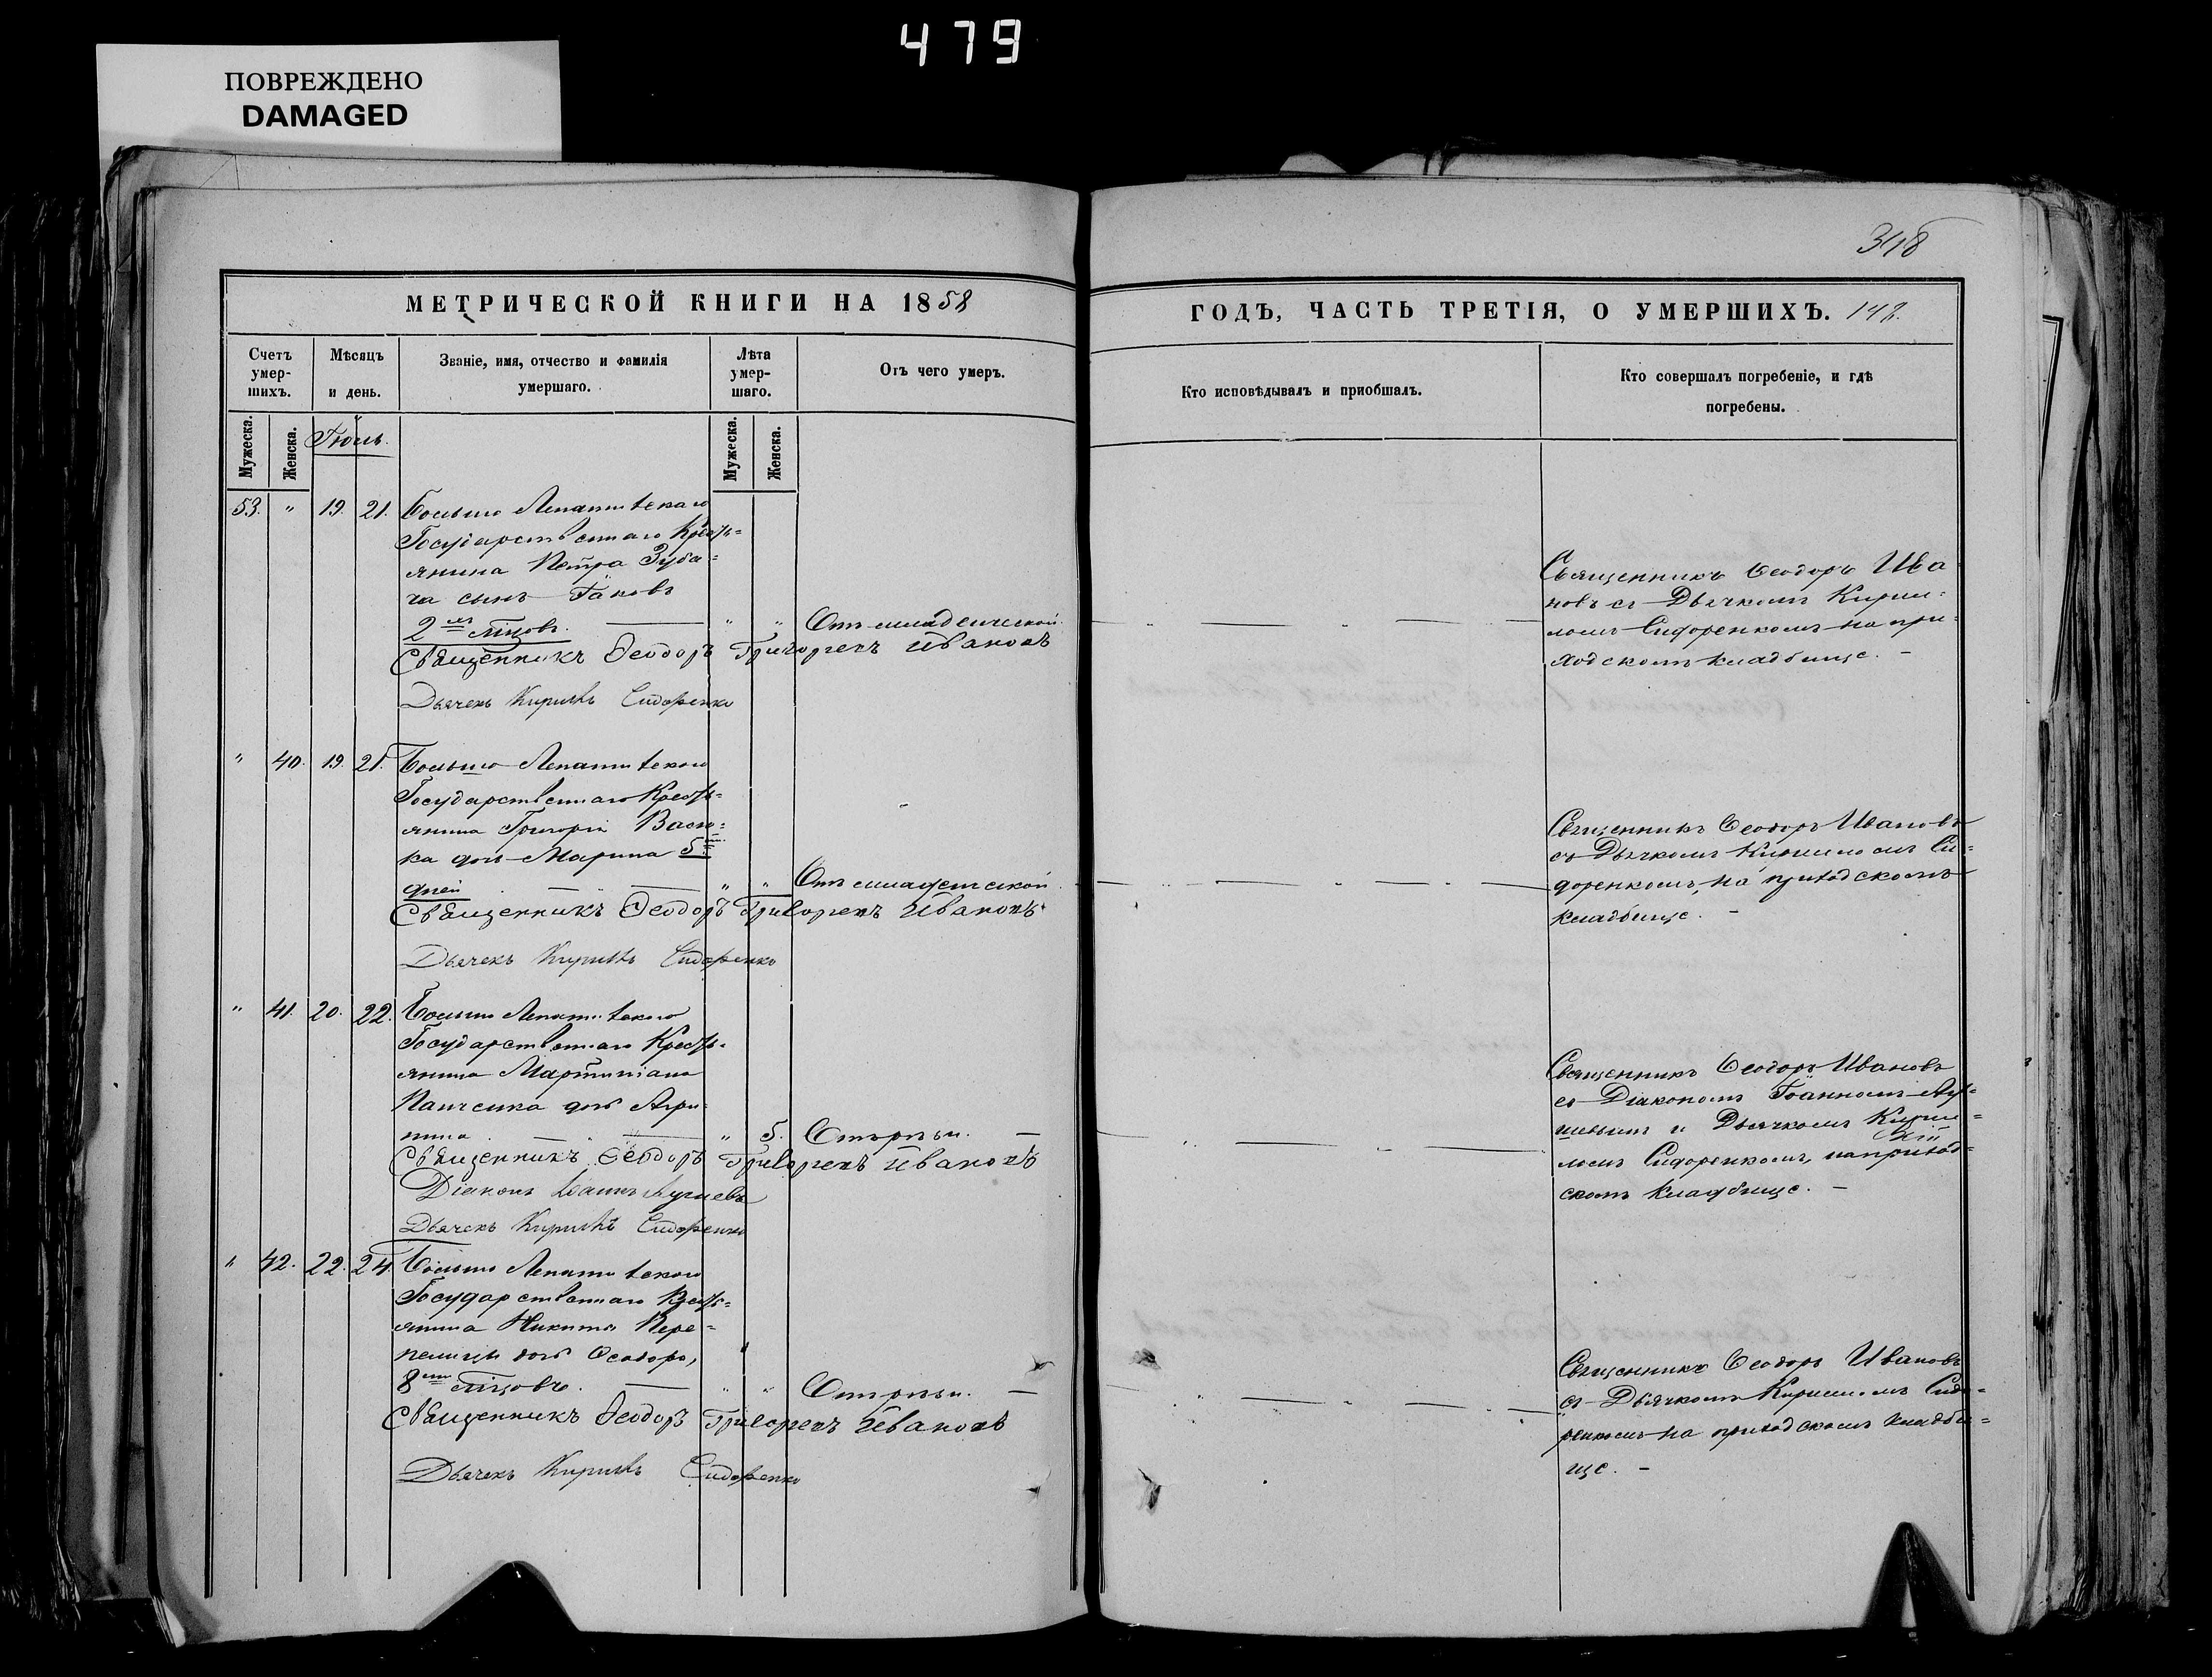 479
ПОВРЕЖДЕНО
DAMAGED
348
МЕТРИЧЕСКОЙ КНИГИ НА 1858
ГОДЪ, ЧАСТЬ ТРЕТІЯ, О УМЕРШИХЪ.
Счетъ умер-шихъ.
Мѣсяцъ и день.
Званіе, имя, отчество и фамилія умершаго.
Лѣта умер-шаго.
Отъ чего умеръ.
Кто исповѣдывалъ и пріобщалъ.
Кто совершалъ погребеніе, и гдѣ погребены.
Мужеска.
Женска.
Іюль.
Мужеска.
Женска.
53. " 19. 21. Больше Лепатитскаго
Государственнаго Кресть=
янина Петра Зуба=
ча сынъ Іаковъ
2хъ мѣсяцовъ. " " Отъ младенческой
Священникъ Ѳеодоръ Григорьевъ Ивановъ
Дьячекъ Кириллъ Сидоренко
Священникъ Ѳеодоръ Ива
новъ съ Дьячкомъ Кирил=
ломъ Сидоренкомъ на при=
ходскомъ кладбище. –
" 40. 19. 21. Больше Лепатитскаго
Государственнаго Кресть=
янина Григорія Васю=
ка дочь Марина 5ти
дней " " Отъ младенческой
Священникъ Ѳеодоръ Григорьевъ Ивановъ
Дьячекъ Кириллъ Сидоренко
Священникъ Ѳеодоръ Ивановъ
съ Дьячкомъ Кирилломъ Си=
доренкомъ, на приходскомъ
кладбище. –
" 41. 20. 22. Больше Лепатитскаго
Государственнаго Кресть=
янина Мартиніана
Панченка дочь Агри=
пина " 5. Отъ рѣзи. –
Священникъ Ѳеодоръ Григорьевъ Ивановъ
Діаконъ Іоаннъ
Дьячекъ Кириллъ Сидоренко
Священникъ Ѳеодоръ Ивановъ
съ Діакономъ Іоанномъ
и Дьячкомъ Кирил=
ломъ Сидоренкомъ, на приход=
скомъ кладбище. –
" 42. 22. 24. Больше Лепатитскаго
Государственнаго Кресть=
янина Никиты Пере=
пелицы дочь Ѳеодора,
8ми мѣсяцовъ. " " Отъ рѣзи. –
Священникъ Ѳеодоръ Григорьевъ Ивановъ
Дьячекъ Кириллъ Сидоренко
Священникъ Ѳеодоръ Ивановъ
съ Дьячкомъ Кирилломъ Сидо=
ренкомъ на приходскомъ кладби=
ще. –